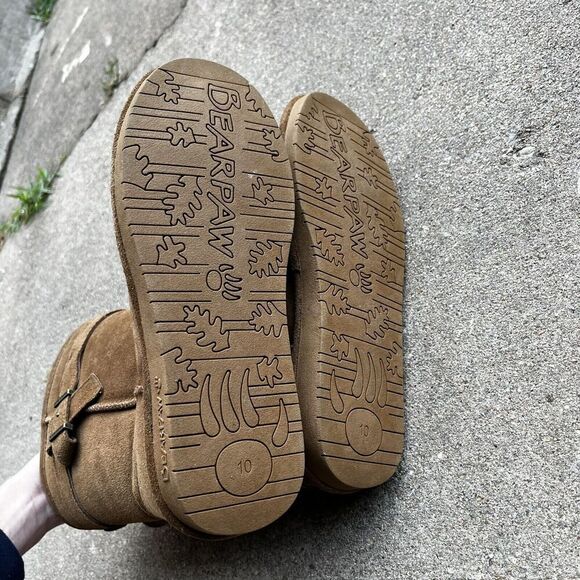 BEARPAW
10
BEARPAW
10